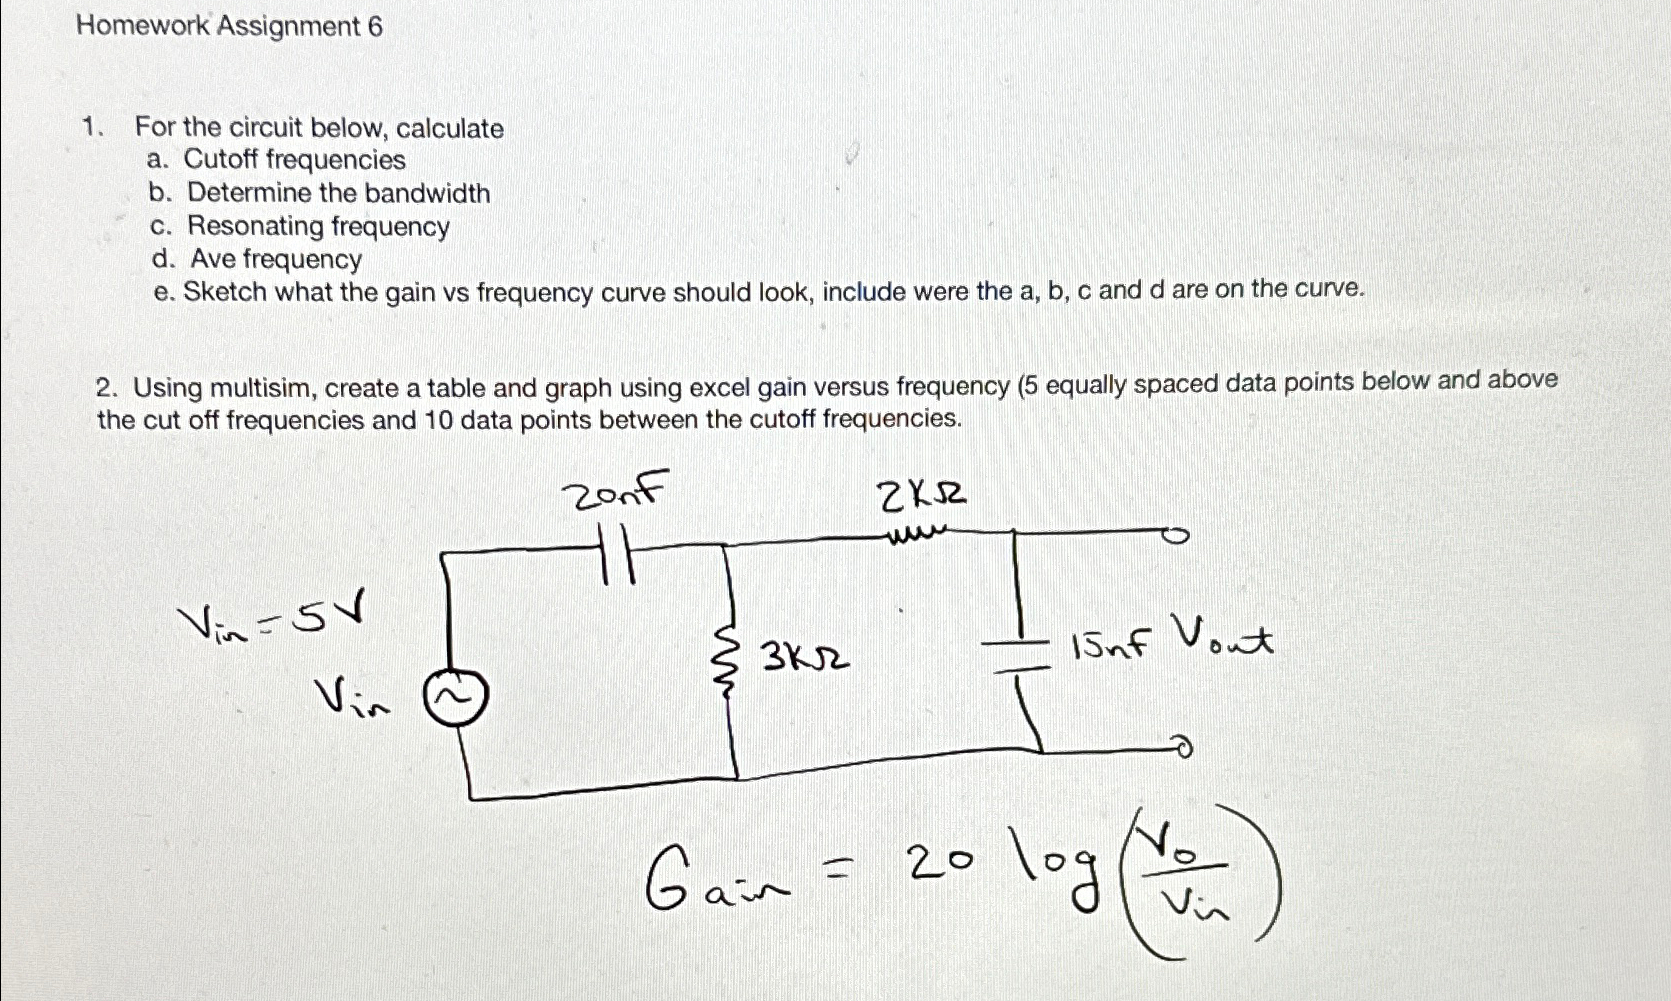 Homework Assignment 6
1. For the circuit below, calculate
a. Cutoff frequencies
b. Determine the bandwidth
c. Resonating frequency
d. Ave frequency
e. Sketch what the gain vs frequency curve should look, include were the a, b, c and d are on the curve.
2. Using multisim, create a table and graph using excel gain versus frequency (5 equally spaced data points below and above
the cut off frequencies and 10 data points between the cutoff frequencies.
20nF
2KΩ
Vin = 5V
3KΩ
15nF Vout
Vin
Gain = 20 log(Vo/Vin)